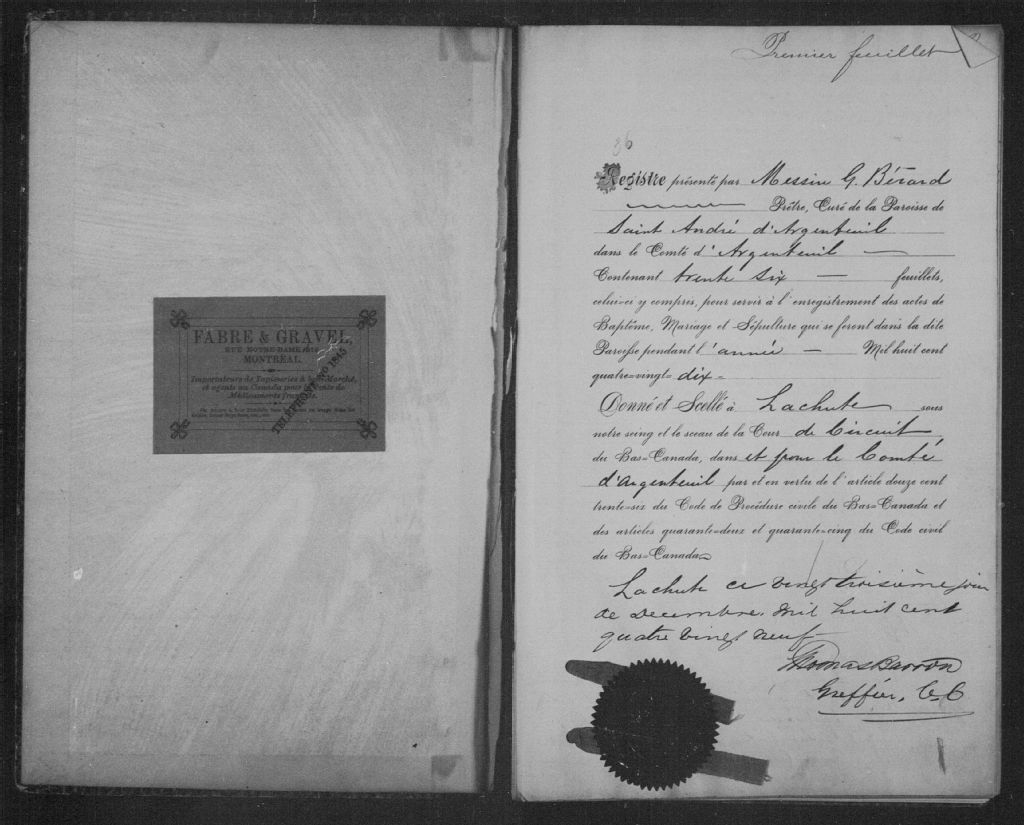 FABRE & GRAVEL,
RUE NOTRE-DAME
MONTRÉAL.
Importateurs de Tapisseries à Bon Marché,
et agents au Canada pour la vente de
Médicaments français.
TELEPHONE NO 1845
Premier feuillet
36
Registre présenté par Messire G. Bérard
Prêtre, Curé de la Paroisse de
Saint André d'Argenteuil
dans le Comté d'Argenteuil —
Contenant trente six — feuillets,
celui-ci y compris, pour servir à l'enregistrement des actes de
Baptême, Mariage et Sépulture qui se feront dans la dite
Paroisse pendant l'année — Mil huit cent
quatre-vingt-dix-
Donné et Scellé à Lachute sous
notre seing et le sceau de la Cour de Circuit
du Bas-Canada, dans et pour le Comté
d'Argenteuil par et en vertu de l'article douze cent
trente-six du Code de Procédure civile du Bas-Canada et
des articles quarante-deux et quarante-cinq du Code civil
du Bas-Canada
Lachute ce vingt troisième jour
de Decembre. Mil huit cent
quatre vingt neuf
Thomas Barron
Greffier, C.C